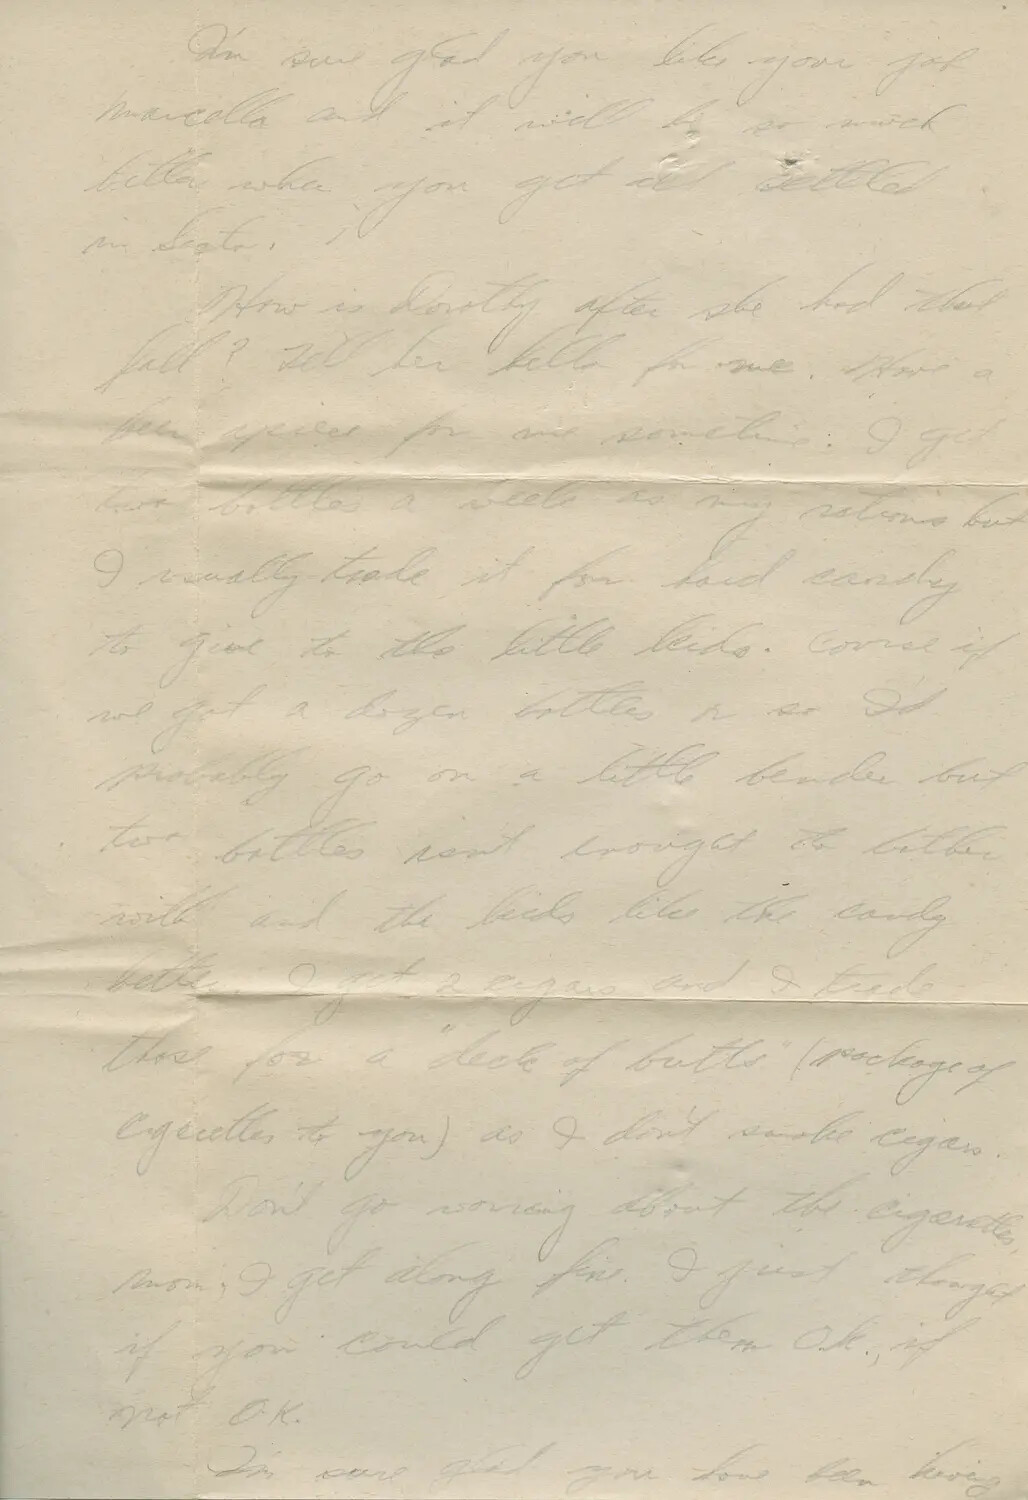 I'm sure glad you like your job
Marcella and it will be so much
better when you get all settled
in
How is Dorothy after she had that
fall? Tell her hello for me. Have a
beer apiece for me sometime. I get
two bottles a week as my rations but
I usually trade it for hard candy
to give to the little kids. Course if
we got a dozen bottles or so I'd
probably go on a little bender but
two bottles isn't enought to bother
with and the kids like the candy
better. I get 2 cigars and I trade
those for a "deck of butts" (package of
cigarettes to you) as I don't smoke cigars.
Don't go worring about the cigarettes,
mom, I get along fine. I just thought
if you could get them O.K., if
not O.K.
I'm sure glad you have been having